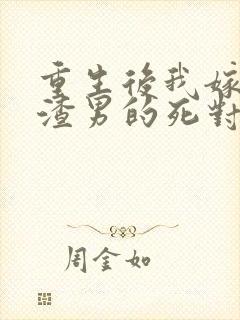 重生後我嫁
渣男的死對
周金如